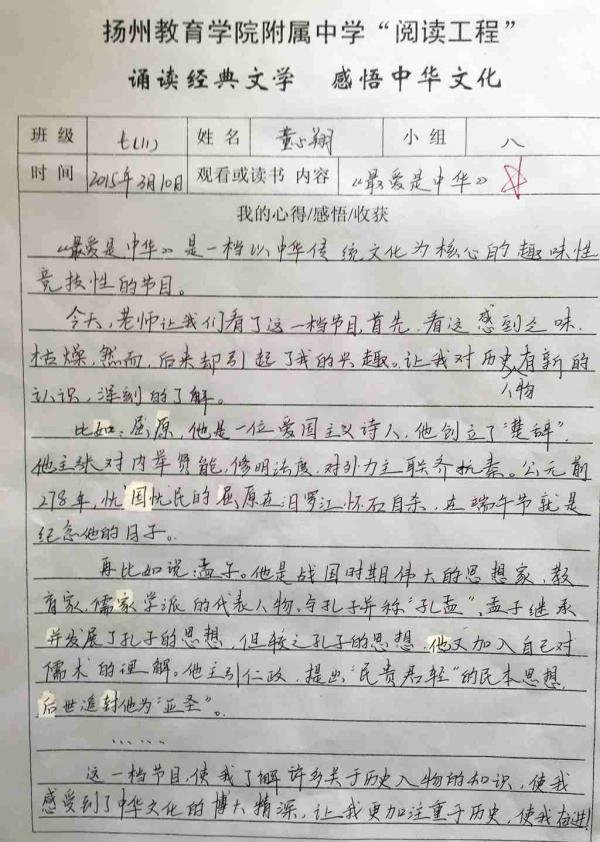 扬州教育学院附属中学“阅读工程”
诵读经典文学 感悟中华文化
班级 七(1) 姓名 童心翔 小组 八
时间 2015年3月10日 观看或读书 内容 《最爱是中华》
我的心得/感悟/收获
《最爱是中华》是一档以中华传统文化为核心的趣味性
竞技性的节目。
今天,老师让我们看了这一档节目,首先,看这感到乏味,
枯燥,然而,后来却引起了我的兴趣。让我对历史人物有新的
认识,深刻的了解。
比如:屈原,他是一位爱国主义诗人,他创立了“楚辞”,
他主张对内举贤能,修明法度,对外力主联齐抗秦。公元前
278年,忧国忧民的屈原在汨罗江怀石自杀,在端午节就是
纪念他的日子。
再比如说:孟子。他是战国时期伟大的思想家、教
育家,儒家学派的代表人物,与孔子并称“孔孟”,孟子继承
并发展了孔子的思想,但较之孔子的思想,他又加入自己对
儒术的理解。他主引仁政,提出“民贵君轻”的民本思想,
后世追封他为“亚圣”。
……
这一档节目,使我了解许多关于历史人物的知识,使我
感受到了中华文化的博大精深,让我更加注重于历史,使我奋进!